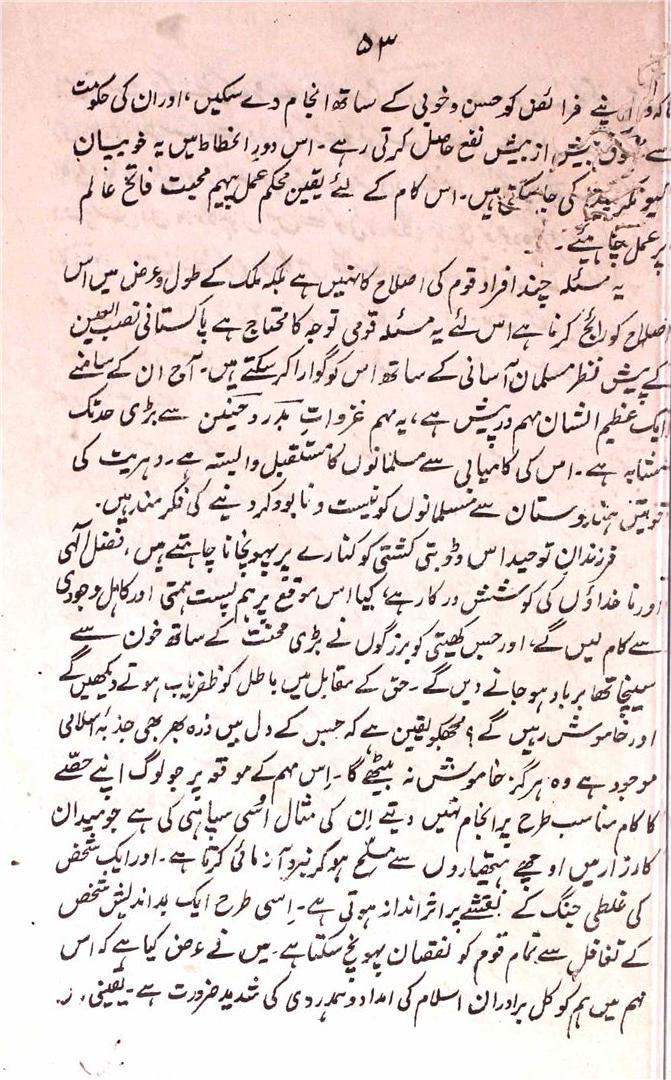 ۵۳
کہ وہ اپنے فرائض کو حسن و خوبی کے ساتھ انجام دے سکیں، اور ان کی حکومت
سے بیش از بیش نفع حاصل کرتی رہے۔ اس دور انحطاط میں یہ خوبیاں
کیونکر پیدا کی جاسکتی ہیں۔ اس کام کے لئے یقین محکم عمل پیہم محبت فاتح عالم
پر عمل چاہیے۔
یہ مسئلہ چند افراد قوم کی اصلاح کا نہیں ہے بلکہ ملک کے طول و عرض میں اس
اصلاح کو رائج کرنا ہے اس لئے یہ مسئلہ قومی توجہ کا محتاج ہے پاکستانی نصب العین
کے پیش نظر مسلمان آسانی کے ساتھ اس کو گوارا کر سکتے ہیں۔ آج ان کے سامنے
ایک عظیم الشان مہم درپیش ہے، یہ مہم غزوات بدر و حنین سے بڑی حد تک
مشابہ ہے۔ اس کی کامیابی سے مسلمانوں کا مستقبل وابستہ ہے۔ دہریت کی
قوتیں ہندوستان سے مسلمانوں کو نیست و نابود کر دینے کی فکر مند ہیں۔
فرزندان توحید اس ڈوبتی کشتی کو کنارے پر پہونچانا چاہتے ہیں، فضل الٰہی
اور ناخداؤں کی کوشش درکار ہے، کیا اس موقع پر ہم پست ہمتی اور کاہل وجودی
سے کام لیں گے، اور جس کھیتی کو بزرگوں نے بڑی محنت کے ساتھ خون سے
سینچا تھا برباد ہو جانے دیں گے۔ حق کے مقابل میں باطل کو ظفریاب ہوتے دیکھیں گے
اور خاموش رہیں گے؟ مجھکو یقین ہے کہ جس کے دل میں ذرہ بھر بھی جذبۂ اسلامی
موجود ہے وہ ہرگز خاموش نہ بیٹھے گا۔ اِس مہم کے موقعہ پر جو لوگ اپنے حصّے
کا کام مناسب طرح پر انجام نہیں دیتے اِن کی مثال اُسی سپاہی کی ہے جو میدان
کارزار میں اوچھے ہتھیاروں سے مسلّح ہو کر نبرد آزمائی کرتا ہے۔ اور ایک شخص
کی غلطی جنگ کے نقشے پر اثر انداز ہوتی ہے۔ اِسی طرح ایک بد اندیش شخص
کے تغافل سے تمام قوم کو نقصان پہونچ سکتا ہے۔ میں نے عرض کیا ہے کہ اس
مہم میں ہم کو کل برادران اسلام کی امداد و ہمدردی کی شدید ضرورت ہے۔ یقینی